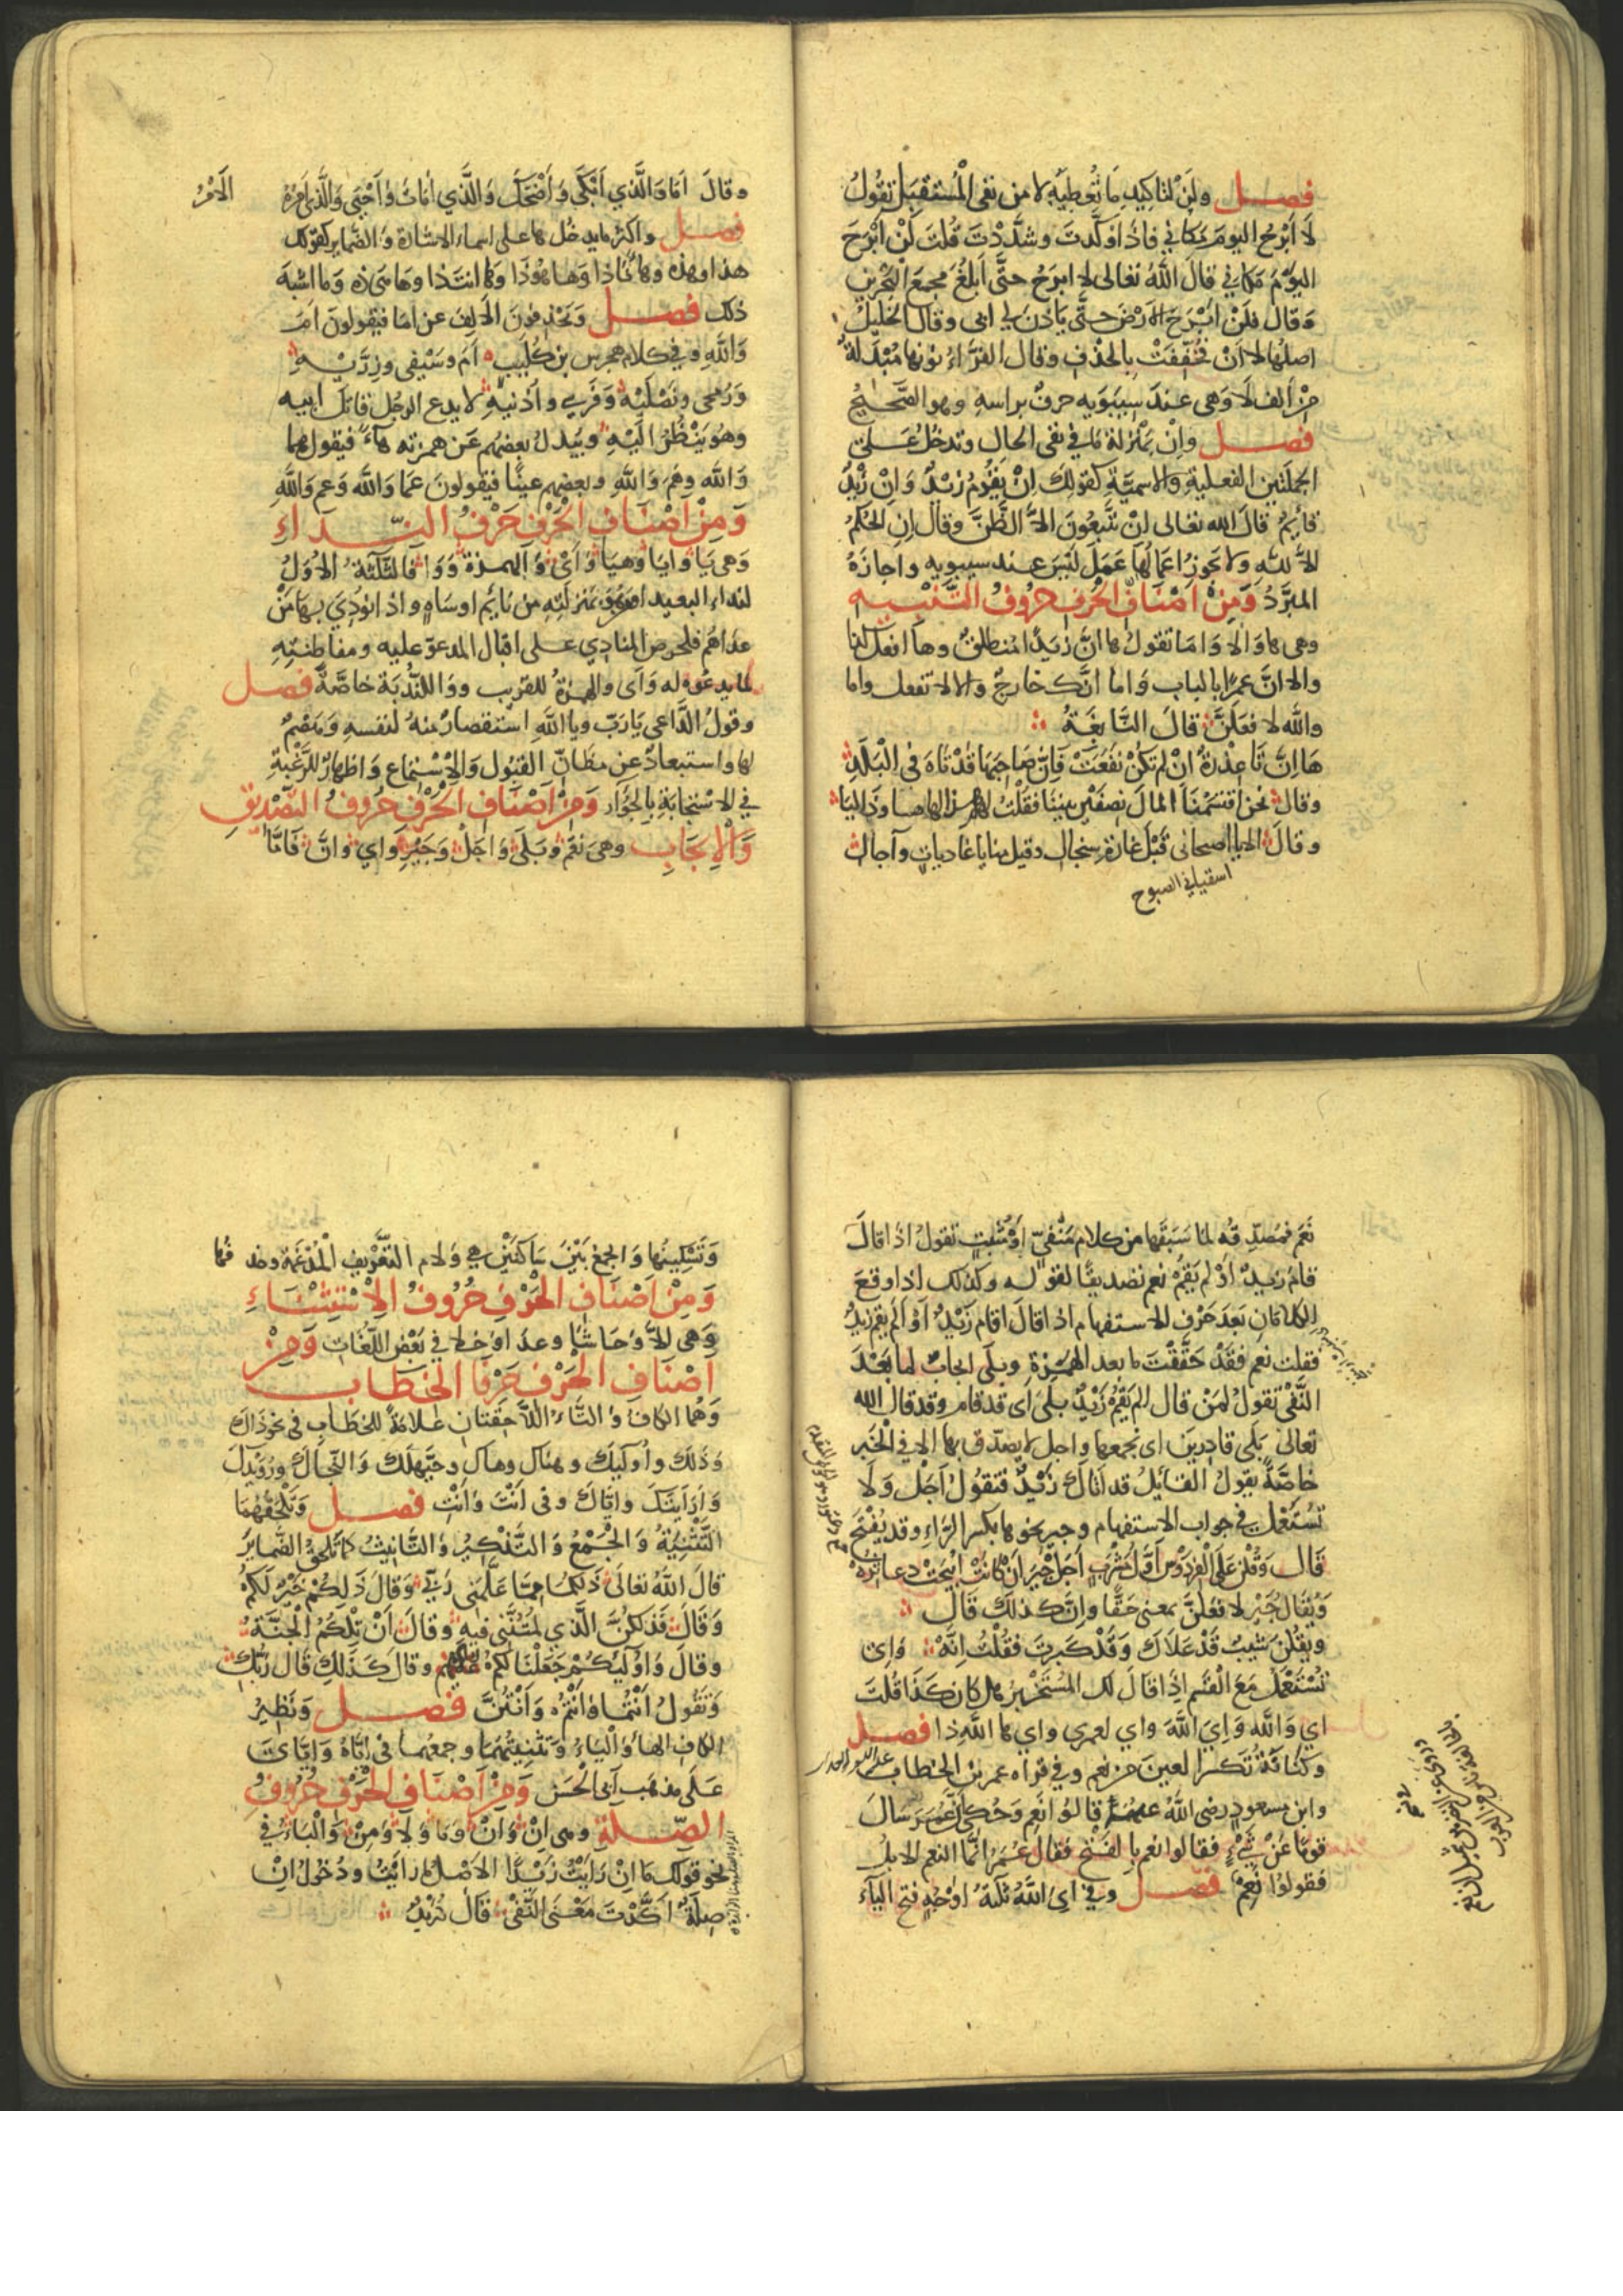 فصل ولن لتاكيد ما تعطيه لا من نفى المستقبل تقول
لا ابرح اليوم مكاني فاذا وكدت وشددت قلت لن ابرح
اليوم مكاني قال الله تعالى لا ابرح حتى ابلغ مجمع البحرين
وقال فلن ابرح الارض حتى ياذن لي ابى وقال الخليل
اصلها لا ان فخففت بالحذف وقال الفراء نونها مبدلة
من الف لا وهى عند سيبويه حرف براسه وهو الصحيح
فصل وان بمنزلة ما في نفى الحال وتدخل على
الجملتين الفعلية والاسمية كقولك ان يقوم زيد وان زيد
قائم قال الله تعالى ان تتبعون الا الظن وقال ان الحكم
الا لله ولا يجوز اعمالها عمل ليس عند سيبويه واجازه
المبرد ومن اصناف الحرف حروف التنبيه
وهى ها والا واما تقول ها ان زيدا منطلق وها افعل كذا
والا ان عمرا بالباب واما انك خارج والا لا تفعل واما
والله لافعلن قال النابغة
ها ان تا عذرة ان لم تكن نفعت فان صاحبها قد تاه في البلد
وقال نحن اقتسمنا المال نصفين بيننا فقلت لهم هذا لها ها وذا ليا
وقال الا يا اصبحانى قبل غارة سنجال وقبل منايا غاديات وآجال
اسقياني الصبوح
وقال اما والذي ابكى واضحك والذي امات واحيى والذي امره الامر
فصل واكثر ما يدخل ها على اسماء الاشارة والضماير كقولك
هذا وهذه وها انا ذا وها هو ذا وها انت ذا وها هى ذه وما اشبه
ذلك فصل ويحذفون الالف عن اما فيقولون ام
والله وفي كلام هجرس بن كليب ام وسيفى وزريه
ورمحى ونصليه وفرسي واذنيه لا يدع الرجل قاتل ابيه
وهو ينظر اليه ويبدل بعضهم عن همزته هاء فيقول هما
والله وهم والله وبعضهم عينا فيقولون عما والله وعم والله
ومن اصناف الحرف حرف النداء
وهى يا وايا وهيا واى والهمزة ووا فالثلثة الاول
لنداء البعيد او من بمنزلته من نايم او ساه واذا نودي بها من
عداهم فلحرص المنادي على اقبال المدعو عليه ومفاطنته
لما يدعوه له واى والهمزة للقريب ووا للندبة خاصة فصل
وقول الداعي يا رب ويا الله استقصار منه لنفسه وهضم
لها واستبعاد عن مظان القبول والاستماع واظهار للرغبة
في الاستجابة بالجؤار ومن اصناف الحرف حروف التصديق
والايجاب وهى نعم وبلى واجل وجير واي وان فاما
نعم فمصدقة لما سبقها من كلام منفي او مثبت تقول اذا قال
قام زيد او لم يقم نعم تصديقا لقوله وكذلك اذا وقع
الكلامان بعد حرف الاستفهام اذا قال اقام زيد او الم يقم زيد
فقلت نعم فقد حققت ما بعد الهمزة وبلى ايجاب لما بعد
النفى تقول لمن قال لم يقم زيد بلى اى قد قام وقد قال الله
تعالى بلى قادرين اى نجمعها واجل لا يصدق بها الا في الخبر
خاصة يقول القائل قد اتاك زيد فتقول اجل ولا
تستعمل في جواب الاستفهام وجير نحوها بكسر الراء وقد يفتح
قال وقلن على الفردوس اول مشرب اجل جير ان كانت ابيحت دعاثره
ويقال جير لافعلن بمعنى حقا وان كذلك قال
ويقلن شيب قد علاك وقد كبرت فقلت انه واي
تستعمل مع القسم اذا قال لك المستخبر هل كان كذا قلت
اي والله واي الله واي لعمري واي ها الله ذا فصل
وكنانة تكسر العين من نعم وفي قراءه عمر بن الخطاب
وابن مسعود رضى الله عنهما قالوا نعم وحكى ان عمر سال
قوما عن شيء فقالوا نعم بالفتح فقال عمر انما النعم الابل
فقولوا نعم فصل وفي اى الله ثلثة اوجه فتح الياء
وتسكينها والجمع بين ساكنين هي ولام التعريف المدغمة وحذفها
ومن اصناف الحرف حروف الاستثناء
وهى الا وحاشا وعدا وخلا في بعض اللغات ومن
اصناف الحرف حرفا الخطاب
وهما الكاف والتاء اللاحقتان علامة للخطاب في نحو ذاك
وذلك واولئك وهناك وهاك وحيهلك والنجاك ورويدك
وارايتك واياك وفى انت وانت فصل وتلحقهما
التثنية والجمع والتذكير والتانيث كما تلحق الضماير
قال الله تعالى ذلكما مما علمنى ربي وقال ذلكم خير لكم
وقال فذلكن الذي لمتننى فيه وقال ان تلكم الجنة
وقال واولئكم جعلنا لكم عليهم وقال كذلك قال ربك
وتقول انتما وانتم وانتن فصل ونظير
الكاف الهاء والياء وتثنيتهما وجمعهما في اياه واياى
على مذهب ابى الحسن ومن اصناف الحرف حروف
الصلة وهى ان وان وما ولا ومن والباء في
نحو قولك ما ان رايت زيدا الاصل ما رايت ودخول ان
صلة اكدت معنى النفى قال دريد